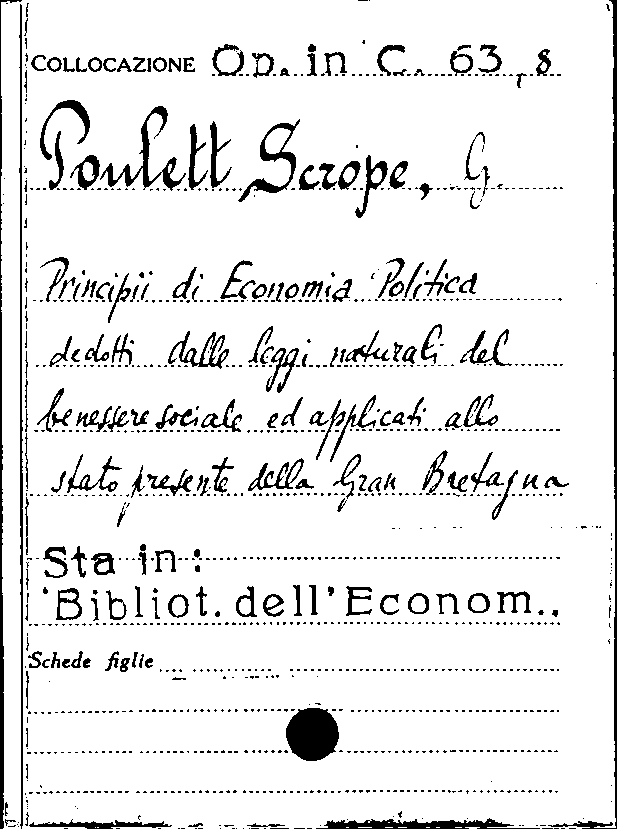 COLLOCAZIONE Op. in C. 63, 8
Poulett Scrope, G.
Principii di Economia Politica
dedotti dalle leggi naturali del
benessere sociale ed applicati allo
stato presente della Gran Bretagna
Sta in:
Bibliot. dell'Econom..
Schede figlie